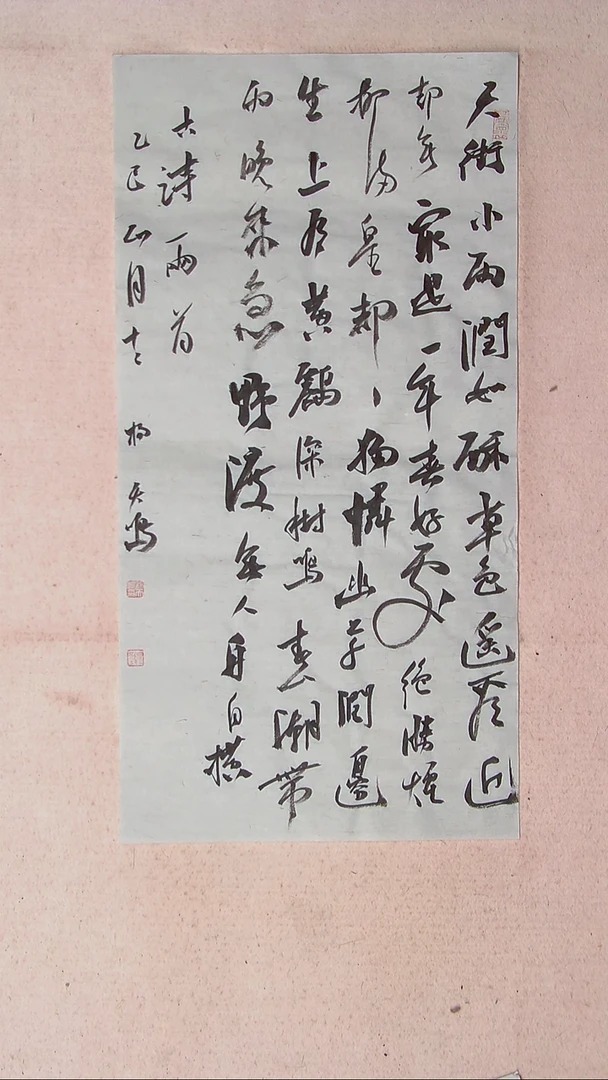 天街小雨潤如酥草色遥看近
却無最是一年春好處絕勝煙
柳滿皇都、獨憐幽草澗邊
生上有黃鸝深樹鳴春潮帶
雨晚來急野渡無人舟自橫
古詩兩首
乙巳正月十二楊天